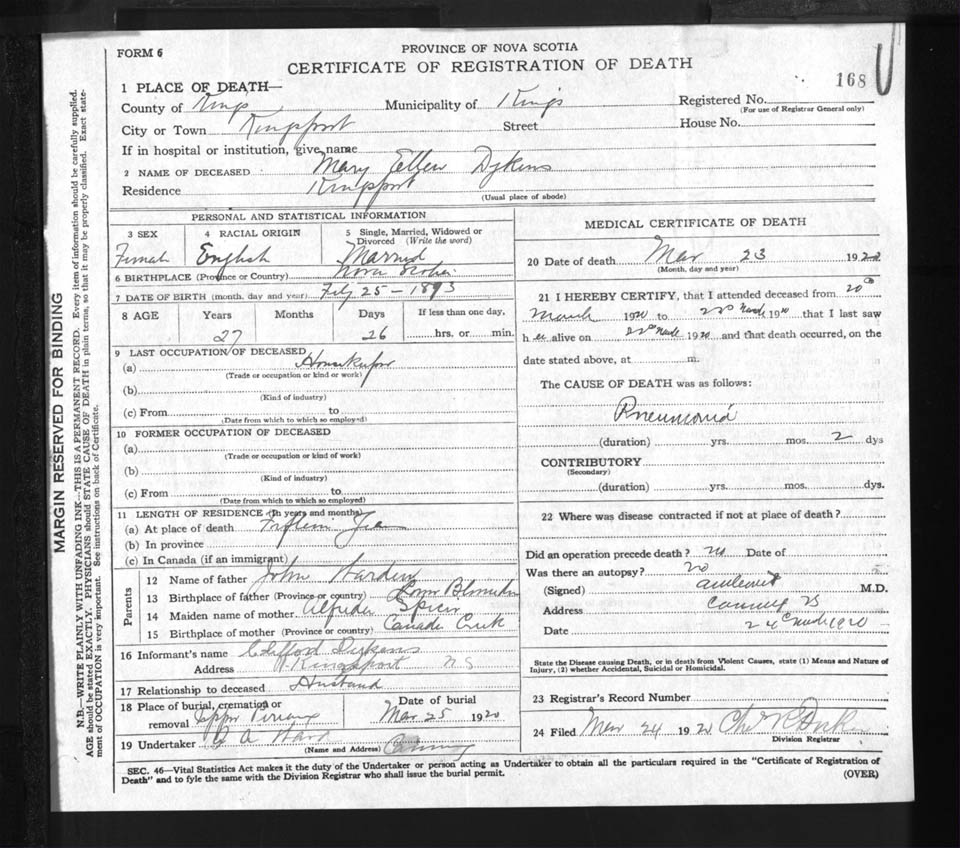 FORM 6
PROVINCE OF NOVA SCOTIA
CERTIFICATE OF REGISTRATION OF DEATH
168
1 PLACE OF DEATH—
County of Kings Municipality of Kings Registered No.
(For use of Registrar General only)
City or Town Kingsport Street House No.
If in hospital or institution, give name
2 NAME OF DECEASED Mary Ellen Dykens
Residence Kingsport
(Usual place of abode)
PERSONAL AND STATISTICAL INFORMATION
3 SEX 4 RACIAL ORIGIN 5 Single, Married, Widowed or Divorced (Write the word)
Female English Married
6 BIRTHPLACE (Province or Country) Nova Scotia
7 DATE OF BIRTH (month, day and year) 25 - 1893
8 AGE Years Months Days If less than one day,
27 26 hrs. or min.
9 LAST OCCUPATION OF DECEASED
(a) Housekeeper
(Trade or occupation or kind or work)
(b)
(Kind of industry)
(c) From to
(Date from which to which so employed)
10 FORMER OCCUPATION OF DECEASED
(a)
(Trade or occupation or kind of work)
(b)
(Kind of industry)
(c) From to
(Date from which to which so employed)
11 LENGTH OF RESIDENCE (In years and months)
(a) At place of death
(b) In province
(c) In Canada (if an immigrant)
Parents
12 Name of father John
13 Birthplace of father (Province or country)
14 Maiden name of mother Spicer
15 Birthplace of mother (Province or country) Canada Creek
16 Informant's name Clifford Dykens
Address Kingsport NS
17 Relationship to deceased Husband
18 Place of burial, cremation or removal Date of burial
Mar 25 1920
19 Undertaker
(Name and Address) Canning
MEDICAL CERTIFICATE OF DEATH
20 Date of death Mar 23 1920
(Month, day and year)
21 I HEREBY CERTIFY, that I attended deceased from 20th
March 1920 to 22nd March 1920 that I last saw
h er alive on 22nd March 1920 and that death occurred, on the
date stated above, at m.
The CAUSE OF DEATH was as follows:
Pneumonia
(duration) yrs. mos. 2 dys
CONTRIBUTORY
(Secondary)
(duration) yrs. mos. dys.
22 Where was disease contracted if not at place of death?
Did an operation precede death? no Date of
Was there an autopsy? no
(Signed) M.D.
Address Canning NS
Date March 1920
State the Disease causing Death, or in death from Violent Causes, state (1) Means and Nature of
Injury, (2) whether Accidental, Suicidal or Homicidal.
23 Registrar's Record Number
24 Filed Mar 24 1920
Division Registrar
SEC. 46—Vital Statistics Act makes it the duty of the Undertaker or person acting as Undertaker to obtain all the particulars required in the "Certificate of Registration of
Death" and to fyle the same with the Division Registrar who shall issue the burial permit.
(OVER)
MARGIN RESERVED FOR BINDING
N.B.—WRITE PLAINLY WITH UNFADING INK—THIS IS A PERMANENT RECORD. Every item of information should be carefully supplied.
AGE should be stated EXACTLY. PHYSICIANS should STATE CAUSE OF DEATH in plain terms, so that it may be properly classified. Exact state-
ment of OCCUPATION is very important. See instructions on back of Certificate.